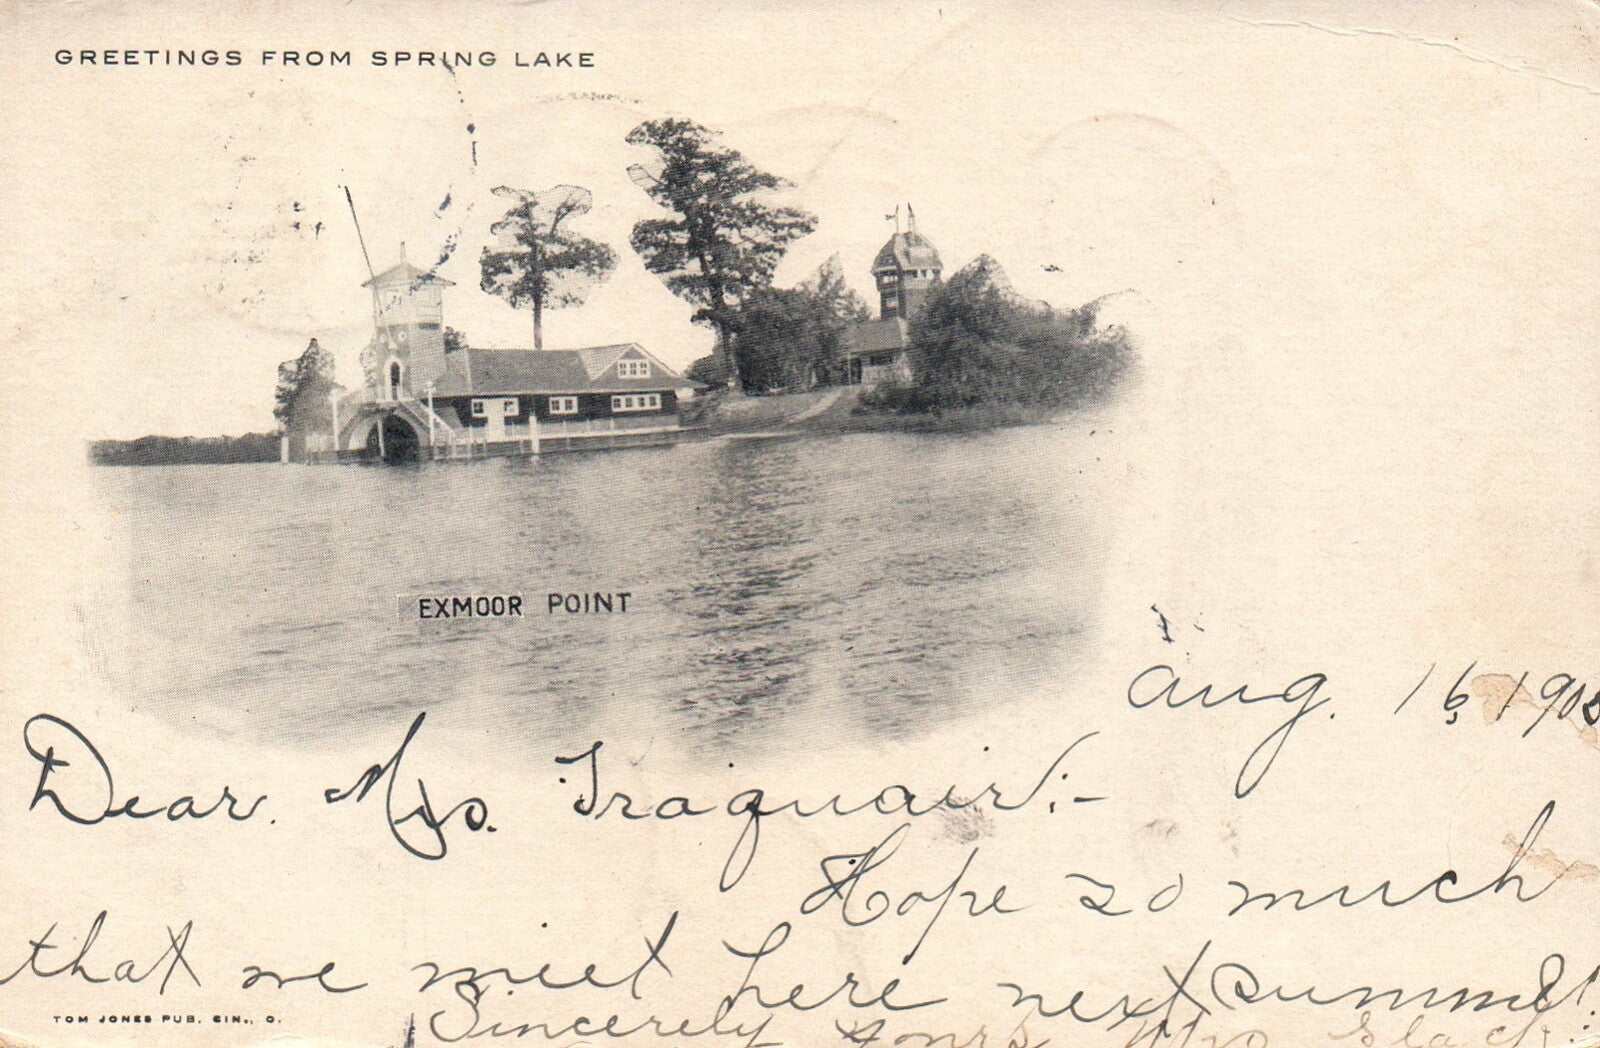 GREETINGS FROM SPRING LAKE
EXMOOR POINT
Aug. 16, 190
Dear Mrs. Traquair:-
Hope so much
that we meet here next summer!
Sincerely yours Mrs Slack.
TOM JONES PUB. CIN., O.